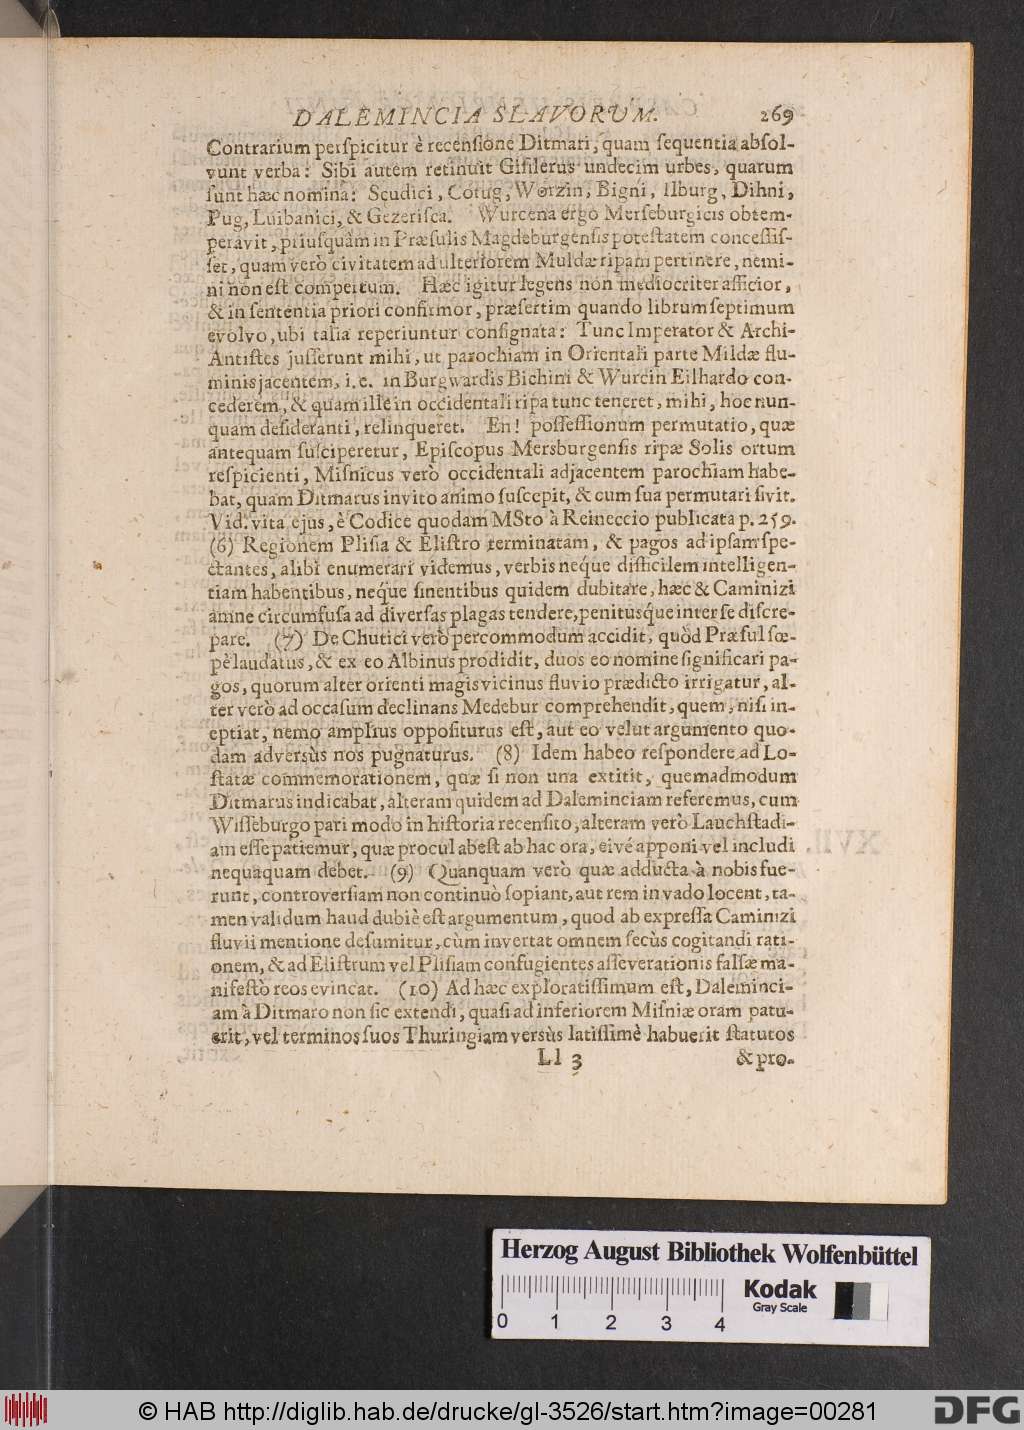 DALEMINCIA SLAVORUM. 269
Contrarium perspicitur è recensione Ditmari, quam sequentia absol-
vunt verba: Sibi autem retinuit Gisilerus undecim urbes, quarum
sunt hæc nomina: Scudici, Cotug, Worzin, Bigni, Ilburg, Dihni,
Pug, Luibanici, & Gezerisca. Wurcena ergo Merseburgicis obtem-
peravit, priusquàm in Præsulis Magdeburgensis potestatem concessis-
set, quam verò civitatem ad ulteriorem Muldæ ripam pertinere, nemi-
ni non est compertum. Hæc igitur legens non mediocriter afficior,
& in sententia priori confirmor, præsertim quando librum septimum
evolvo, ubi talia reperiuntur consignata: Tunc Imperator & Archi-
Antistes jusserunt mihi, ut parochiam in Orientali parte Mildæ flu-
minis jacentem, i. e. in Burgwardis Bichini & Wurcin Eilhardo con-
cederem, & quam ille in occidentali ripa tunc teneret, mihi, hoc nun-
quam desideranti, relinqueret. En! possessionum permutatio, quæ
antequam susciperetur, Episcopus Mersburgensis ripæ Solis ortum
respicienti, Misnicus verò occidentali adjacentem parochiam habe-
bat, quam Ditmarus invito animo suscepit, & cum sua permutari sivit.
Vid. vita ejus, è Codice quodam MSto à Reineccio publicata p. 259.
(6) Regionem Plisia & Elistro terminatam, & pagos ad ipsam spe-
ctantes, alibi enumerari videmus, verbis neque difficilem intelligen-
tiam habentibus, neque sinentibus quidem dubitare, hæc & Caminizi
amne circumfusa ad diversas plagas tendere, penitusque inter se discre-
pare. (7) De Chutici verò percommodum accidit, quòd Præsul sœ-
pè laudatus, & ex eo Albinus prodidit, duos eo nomine significari pa-
gos, quorum alter orienti magis vicinus fluvio prædicto irrigatur, al-
ter verò ad occasum declinans Medebur comprehendit, quem, nisi in-
eptiat, nemo amplius oppositurus est, aut eo velut argumento quo-
dam adversùs nos pugnaturus. (8) Idem habeo respondere ad Lo-
statæ commemorationem, quæ si non una extitit, quemadmodum
Ditmarus indicabat, alteram quidem ad Daleminciam referemus, cum
Wisseburgo pari modo in historia recensito, alteram verò Lauchstadi-
am esse patiemur, quæ procul abest ab hac ora, eivé apponi vel includi
nequaquam debet. (9) Quanquam verò quæ adducta à nobis fue-
runt, controversiam non continuò sopiant, aut rem in vado locent, ta-
men validum haud dubiè est argumentum, quod ab expressa Caminizi
fluvii mentione desumitur, cùm invertat omnem secùs cogitandi rati-
onem, & ad Elistrum vel Plisiam confugientes asseverationis falsæ ma-
nifestò reos evincat. (10) Ad hæc exploratissimum est, Daleminci-
am à Ditmaro non sic extendi, quasi ad inferiorem Misniæ oram patu-
erit, vel terminos suos Thuringiam versùs latissimè habuerit statutos
Ll 3 & pro-
Herzog August Bibliothek Wolfenbüttel
Kodak
Gray Scale
0 1 2 3 4
© HAB http://diglib.hab.de/drucke/gl-3526/start.htm?image=00281
DFG